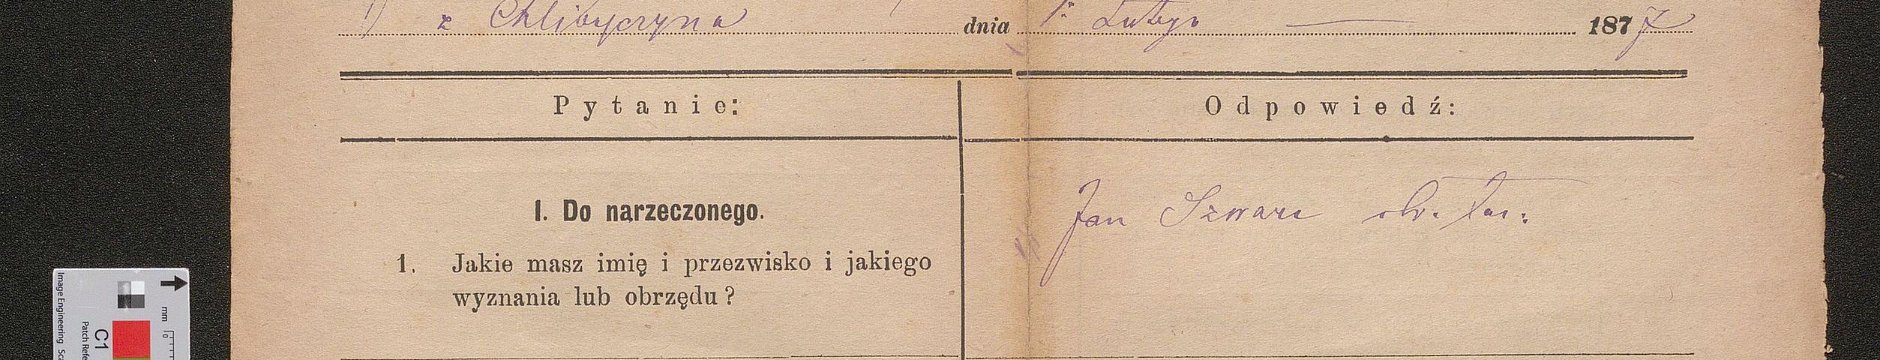 z Chlibyczyna dnia 1. Lutego 1877
Pytanie: Odpowiedź:
I. Do narzeczonego.
Jan Szwarc obr. łac.
1. Jakie masz imię i przezwisko i jakiego
wyznania lub obrzędu?
Image Engineering
Patch Refe
C1
mm
0